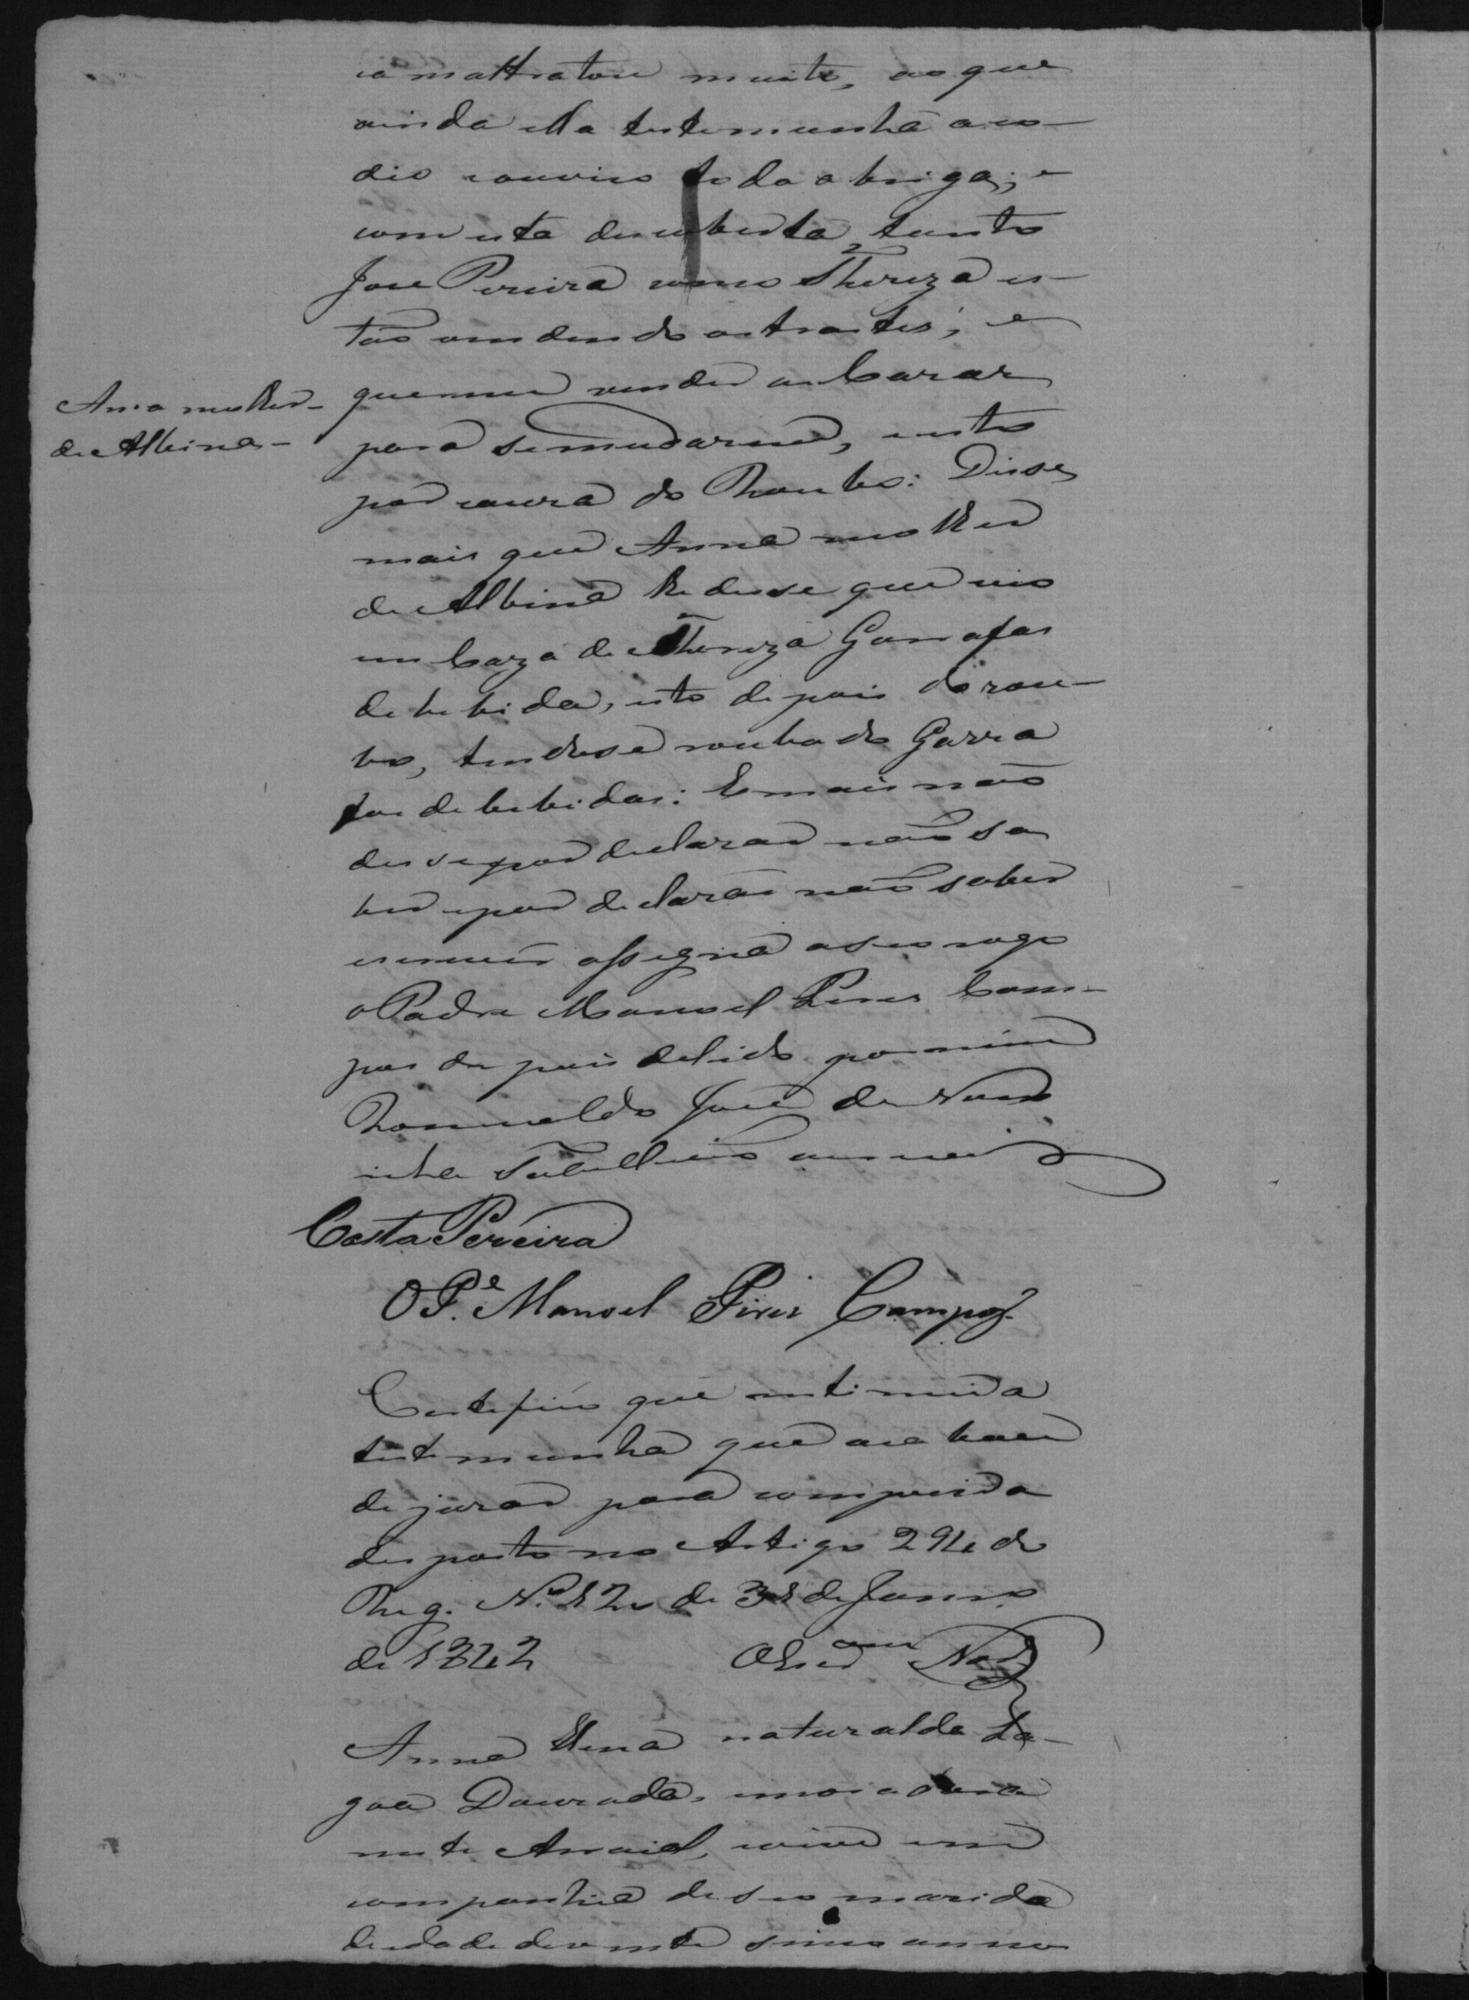 a maltratou muito, ao que
ainda ella testemunha acu-
dio e ouvio toda a briga; e
com esta descuberta, tanto
Jose Pereira como Thereza es-
tão vendendo os trastes; e
querem vender as Cazas
para se mudarem, isto
por cauza do Roubo: Disse
Anna mulher
de Albino
mais que Anna mulher
de Albino lhe disse que vio
em Caza de Thereza Garrafas
de bebida, isto depois do rou-
bo, tendose roubado Garra
fas de bebidas: E mais não
disse por declarar não sa
ber e por declarar não saber
escrever assigna a seo rogo
o Padre Manoel Pires Cam-
pos depois de lido por mim
Romualdo José de Noro
nha Tabellião escrevi
Costa Pereira
O P.e Manoel Pires Campos
Certefico que intimei a
testemunha que acabou
de jurar para comprir o
desposto no Artigo 294 do
Reg. N.º 120 de 31 de Janro
de 1842 Oescram Nor
Anna Elena natural da La-
goa Dourada, moradora
neste Arraial, vive em
companhia de seo marido
de idade de vinte sinco annos